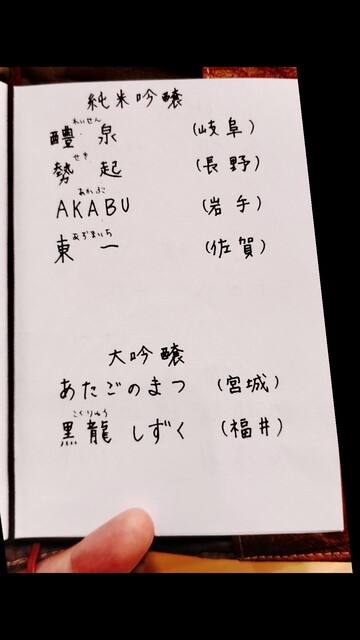 純米吟醸
れいせん
醴泉 (岐阜)
せき
勢起 (長野)
あかぶ
AKABU (岩手)
あずまいち
東一 (佐賀)
大吟醸
あたごのまつ (宮城)
こくりゅう
黒龍 しずく (福井)